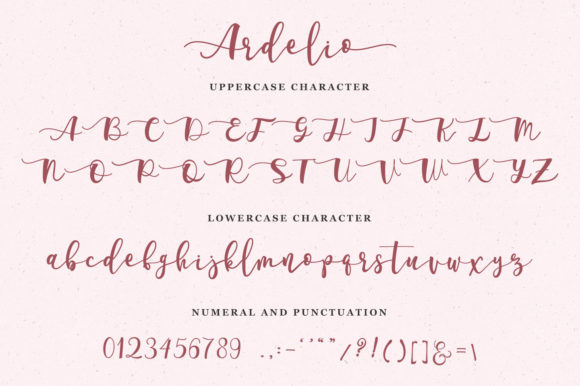 Ardelio
UPPERCASE CHARACTER
A B C D E F G H I J K L M
N O P Q R S T U V W X Y Z
LOWERCASE CHARACTER
abcdefghijklmnopqrstuvwxyz
NUMERAL AND PUNCTUATION
0123456789 .,:-‘’“”/?!()[]&=\